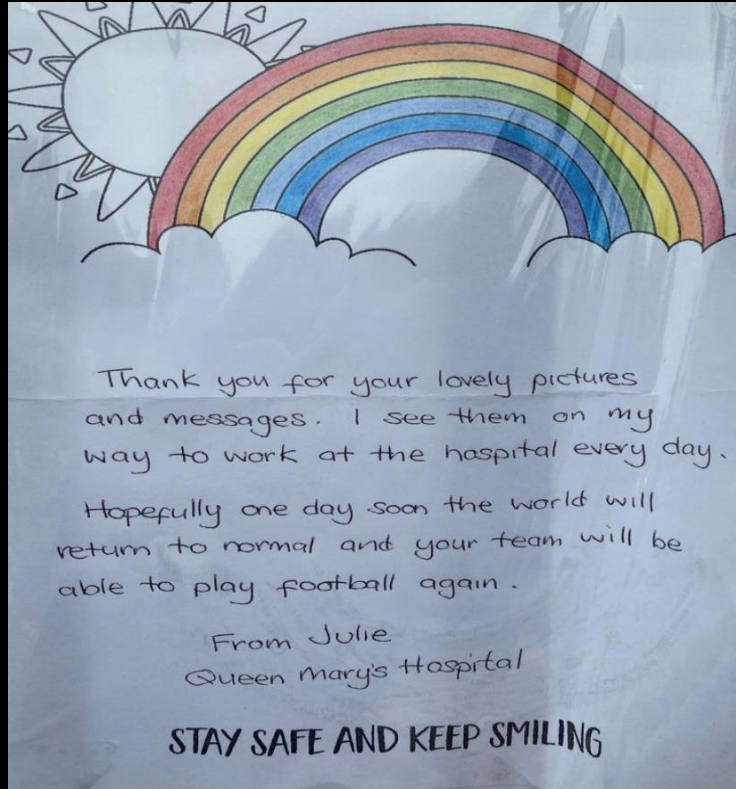 Thank you for your lovely pictures
and messages. I see them on my
way to work at the hospital every day.
Hopefully one day soon the world will
return to normal and your team will be
able to play football again.
From Julie
Queen Mary's Hospital
STAY SAFE AND KEEP SMILING